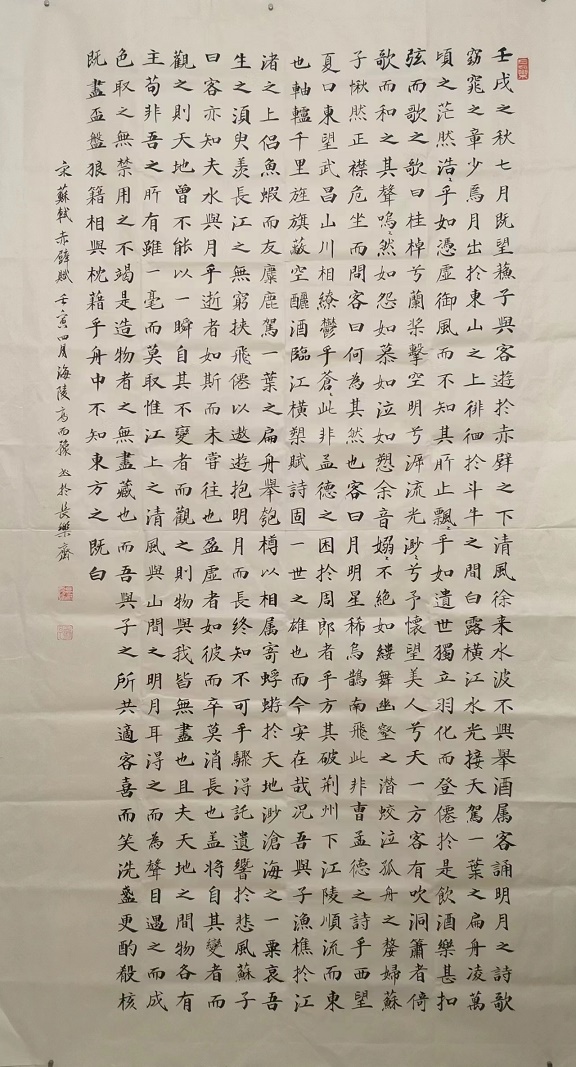 壬戌之秋七月既望蘓子與客遊於赤壁之下清風徐来水波不興舉酒属客誦明月之詩歌
窈窕之章少焉月出於東山之上徘徊於斗牛之間白露横江水光接天駕一葉之扁舟凌萬
頃之茫然浩〻乎如憑虛御風而不知其所止飄〻乎如遺世獨立羽化而登僊於是飲酒樂甚扣
弦而歌之歌曰桂棹兮蘭桨擊空明兮泝流光渺〻兮予懷望美人兮天一方客有吹洞簫者倚
歌而和之其聲嗚〻然如怨如慕如泣如愬余音嫋〻不絶如縷舞幽壑之潜蛟泣孤舟之嫠婦蘇
子愀然正襟危坐而問客曰何為其然也客曰月明星稀烏鵲南飛此非曹孟德之詩乎西望
夏口東望武昌山川相繚鬱乎蒼〻此非孟德之困於周郎者乎方其破荆州下江陵順流而東
也軸轤千里旌旗蔽空釃酒臨江横槊賦詩固一世之雄也而今安在哉况吾與子漁樵於江
渚之上侣魚蝦而友麋鹿駕一葉之扁舟舉匏樽以相属寄蜉蝣於天地渺滄海之一粟哀吾
生之須臾羡長江之無窮挾飛僊以遨遊抱明月而長终知不可乎驟得託遺響於悲風蘇子
曰客亦知夫水與月乎逝者如斯而未嘗往也盈虚者如彼而卒莫消長也盖将自其變者而
觀之則天地曾不能以一瞬自其不變者而觀之則物與我皆無盡也且夫天地之間物各有
主苟非吾之所有雖一毫而莫取惟江上之清風與山間之明月耳得之而為聲目遇之而成
色取之無禁用之不竭是造物者之無盡藏也而吾與子之所共適客喜而笑洗盞更酌殽核
既盡盃盤狼籍相與枕藉乎舟中不知東方之既白
宋蘇軾赤壁賦壬寅四月海陵高而豫书於長樂齋